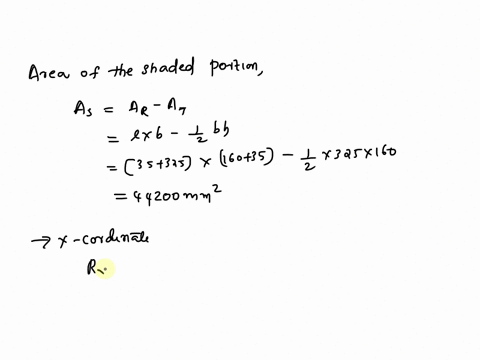 Area of the shaded portion,
As = AR - AT
= l×b - 1/2 bh
= (35+325) × (160+35) - 1/2 × 325×160
= 44200 mm²
→ x-cordinate
Rx